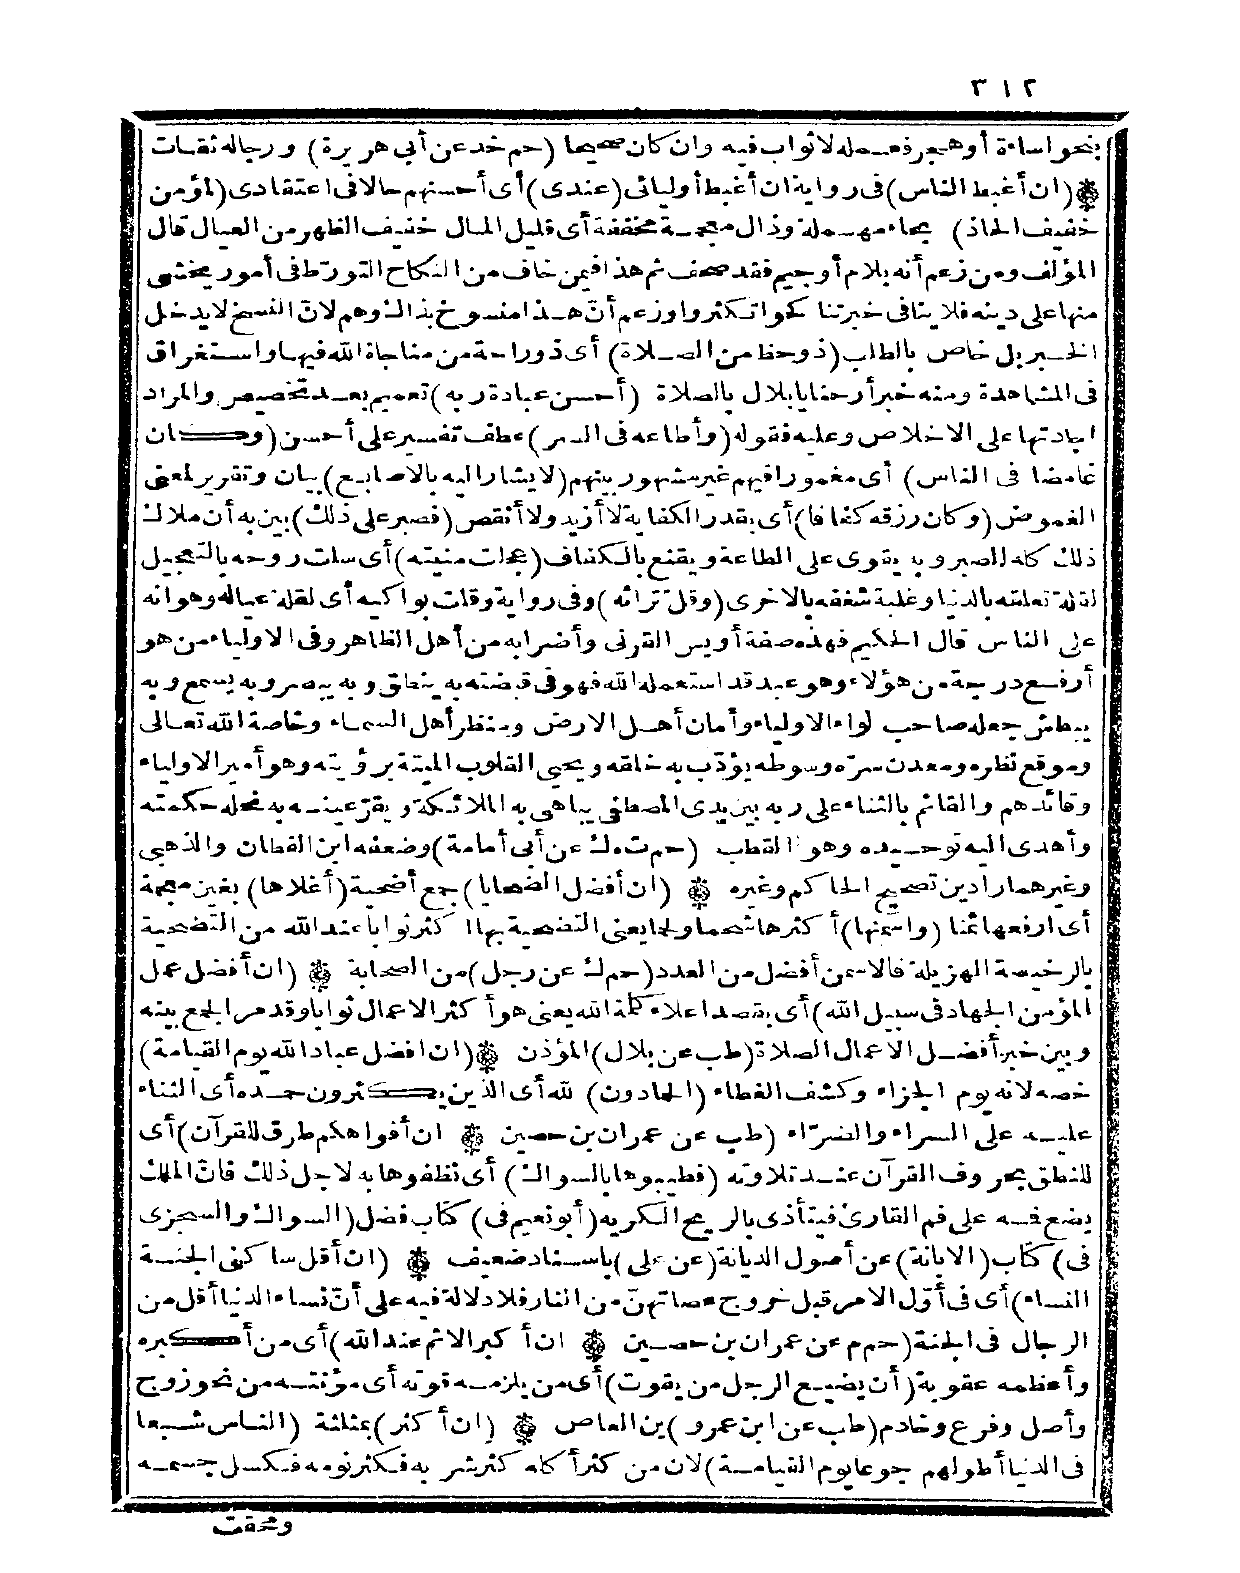 ٣١٢
بنحو اساءة أو هجر فعمله لا ثواب فيه وان كان صحيحا (حم خد عن أبى هريرة) ورجاله ثقات
(ان أغبط الناس) فى رواية ان أغبط أوليائى (عندى) أى أحسنهم حالا فى اعتقادى (لمؤمن
خفيف الحاذ) بحاء مهملة وذال معجمة مخففة أى قليل المال خفيف الظهر من العيال قال
المؤلف ومن زعم أنه بلام أو جيم فقد صحف ثم هذا فيمن خاف من النكاح التورّط فى أمور يخشى
منها على دينه فلا ينافى خبر تنا كحوا تكثروا وزعم أنّ هذا منسوخ بذاك وهم لان النسخ لا يدخل
الخبر بل خاص بالطلب (ذو حظ من الصلاة) أى ذو راحة من مناجاة الله فيها واستغراق
فى المشاهدة ومنه خبر أرحنا يا بلال بالصلاة (أحسن عبادة ربه) تعميم بعد تخصيص والمراد
اجادتها على الاخلاص وعليه فقوله (وأطاعه فى السر) عطف تفسير على أحسن (وكان
غامضا فى الناس) أى مغمورا فيهم غير مشهور بينهم (لا يشار اليه بالاصابع) بيان وتقرير لمعنى
الغموض (وكان رزقه كفافا) أى بقدر الكفاية لا أزيد ولا أنقص (فصبر على ذلك) بين به أن ملاك
ذلك كله الصبر وبه يقوى على الطاعة ويقنع بالكفاف (عجلت منيته) أى سلت روحه بالتعجيل
لقلة تعلقه بالدنيا وغلبة شغفه بالاخرى (وقلّ تراثه) وفى رواية وقلت بواكيه أى لقلة عياله وهوانه
على الناس قال الحكيم فهذه صفة أويس القرنى وأضرابه من أهل الظاهر وفى الاولياء من هو
أرفع درجة من هؤلاء وهو عبد قد استعمله الله فهو فى قبضته به ينطق وبه يبصر وبه يسمع وبه
يبطش جعله صاحب لواء الاولياء وأمان أهل الارض ومنظر أهل السماء وخاصة الله تعالى
وموقع نظره ومعدن سرّه وسوطه يؤدّب به خلقه ويحيى القلوب الميتة برؤيته وهو أمير الاولياء
وقائدهم والقائم بالثناء على ربه بين يدى المصطفى يباهى به الملائكة ويقرّ عينه به نحله حكمته
وأهدى اليه توحيده وهو القطب (حم ت ه ك عن أبى أمامة) وضعفه ابن القطان والذهبى
وغيرهما رادين تصحيح الحاكم وغيره (ان أفضل الضحايا) جمع أضحية (أغلاها) بغين معجمة
أى ارفعها ثمنا (واسمنها) أكثرها شحما ولحما يعنى التضحية بها اكثر ثوابا عند الله من التضحية
بالرخيصة الهزيلة فالاسمن أفضل من العدد (حم ك عن رجل) من الصحابة (ان أفضل عمل
المؤمن الجهاد فى سبيل الله) أى بقصد اعلاء كلمة الله يعنى هو أكثر الاعمال ثوابا وقد مر الجمع بينه
وبين خبر أفضل الاعمال الصلاة (طب عن بلال) المؤذن (ان افضل عباد الله يوم القيامة)
خصه لانه يوم الجزاء وكشف الغطاء (الحمادون) لله أى الذين يكثرون حمده أى الثناء
عليه على السراء والضرّاء (طب عن عمران بن حصين ان أفواهكم طرق للقرآن) أى
للنطق بحروف القرآن عند تلاوته (فطيبوها بالسواك) أى نظفوها به لاجل ذلك فانّ الملك
يضع فمه على فم القارئ فيتأذى بالريح الكريه (أبو نعيم فى) كتاب فضل (السواك والسجزى
فى) كتاب (الابانة) عن أصول الديانة (عن على) باسناد ضعيف (ان أقل ساكنى الجنة
النساء) أى فى أوّل الامر قبل خروج عصاتهنّ من النار فلا دلالة فيه على أنّ نساء الدنيا أقل من
الرجال فى الجنة (حم م عن عمران بن حصين ان أكبر الاثم عند الله) أى من أكبره
وأعظمه عقوبة (أن يضيع الرجل من يقوت) أى من يلزمه قوته أى مؤنته من نحو زوج
وأصل وفرع وخادم (طب عن ابن عمرو) بن العاص (ان أكثر) بمثلثة (الناس شبعا
فى الدنيا أطولهم جوعا يوم القيامة) لان من كثر أكله كثر شربه فكثر نومه فكسل جسمه
ومحقت